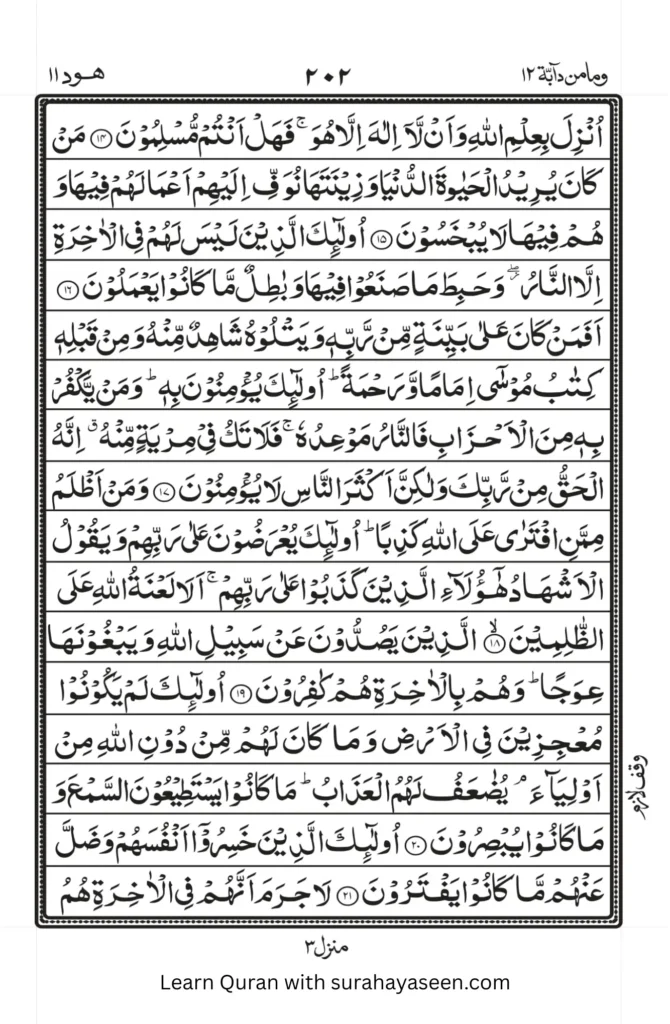 ومامن دآبة ١٢
٢٠٢
هود ١١
اُنْزِلَ بِعِلْمِ اللّٰهِ وَاَنْ لَّاۤ اِلٰهَ اِلَّا هُوَ ۚ فَهَلْ اَنْتُمْ مُّسْلِمُوْنَ ﴿۱۴﴾ مَنْ
كَانَ يُرِيْدُ الْحَيٰوةَ الدُّنْيَا وَزِيْنَتَهَا نُوَفِّ اِلَيْهِمْ اَعْمَالَهُمْ فِيْهَا وَ
هُمْ فِيْهَا لَا يُبْخَسُوْنَ ﴿۱۵﴾ اُولٰٓئِكَ الَّذِيْنَ لَيْسَ لَهُمْ فِى الْاٰخِرَةِ
اِلَّا النَّارُ ۖ وَحَبِطَ مَا صَنَعُوْا فِيْهَا وَبٰطِلٌ مَّا كَانُوْا يَعْمَلُوْنَ ﴿۱۶﴾
اَفَمَنْ كَانَ عَلٰى بَيِّنَةٍ مِّنْ رَّبِّهٖ وَيَتْلُوْهُ شَاهِدٌ مِّنْهُ وَمِنْ قَبْلِهٖ
كِتٰبُ مُوْسٰۤى اِمَامًا وَّرَحْمَةً ؕ اُولٰٓئِكَ يُؤْمِنُوْنَ بِهٖ ؕ وَمَنْ يَّكْفُرْ
بِهٖ مِنَ الْاَحْزَابِ فَالنَّارُ مَوْعِدُهٗ ۚ فَلَا تَكُ فِىْ مِرْيَةٍ مِّنْهُ ۗ اِنَّهُ
الْحَقُّ مِنْ رَّبِّكَ وَلٰكِنَّ اَكْثَرَ النَّاسِ لَا يُؤْمِنُوْنَ ﴿۱۷﴾ وَمَنْ اَظْلَمُ
مِمَّنِ افْتَرٰى عَلَى اللّٰهِ كَذِبًا ؕ اُولٰٓئِكَ يُعْرَضُوْنَ عَلٰى رَبِّهِمْ وَيَقُوْلُ
الْاَشْهَادُ هٰۤؤُلَاۤءِ الَّذِيْنَ كَذَبُوْا عَلٰى رَبِّهِمْ ۚ اَلَا لَعْنَةُ اللّٰهِ عَلَى
الظّٰلِمِيْنَ ﴿۱۸﴾ ۙ الَّذِيْنَ يَصُدُّوْنَ عَنْ سَبِيْلِ اللّٰهِ وَيَبْغُوْنَهَا
عِوَجًا ؕ وَهُمْ بِالْاٰخِرَةِ هُمْ كٰفِرُوْنَ ﴿۱۹﴾ اُولٰٓئِكَ لَمْ يَكُوْنُوْا
مُعْجِزِيْنَ فِى الْاَرْضِ وَمَا كَانَ لَهُمْ مِّنْ دُوْنِ اللّٰهِ مِنْ
اَوْلِيَآءَ ۘ يُضٰعَفُ لَهُمُ الْعَذَابُ ؕ مَا كَانُوْا يَسْتَطِيْعُوْنَ السَّمْعَ وَ
مَا كَانُوْا يُبْصِرُوْنَ ﴿۲۰﴾ اُولٰٓئِكَ الَّذِيْنَ خَسِرُوْۤا اَنْفُسَهُمْ وَضَلَّ
عَنْهُمْ مَّا كَانُوْا يَفْتَرُوْنَ ﴿۲۱﴾ لَا جَرَمَ اَنَّهُمْ فِى الْاٰخِرَةِ هُمُ
وقف لازم
منزل ٣
Learn Quran with surahayaseen.com